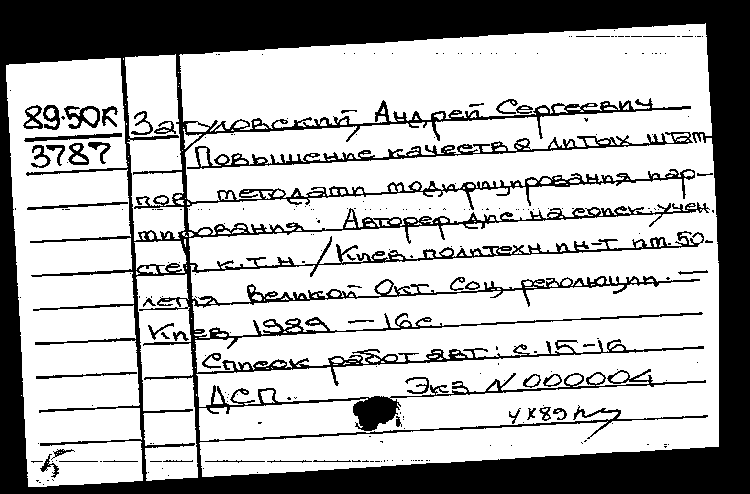 89-50К
3787
Затуловский, Андрей Сергеевич
Повышение качества литых штам-
пов методами модифицирования и ар-
мирования : Автореф. дис. на соиск. учен.
степ. к.т.н. / Киев. политехн. ин-т им. 50-
летия Великой Окт. Соц. революции. —
Киев, 1989 — 16с.
Список работ авт.: с. 15-16
ДСП. Экз N 000004
5